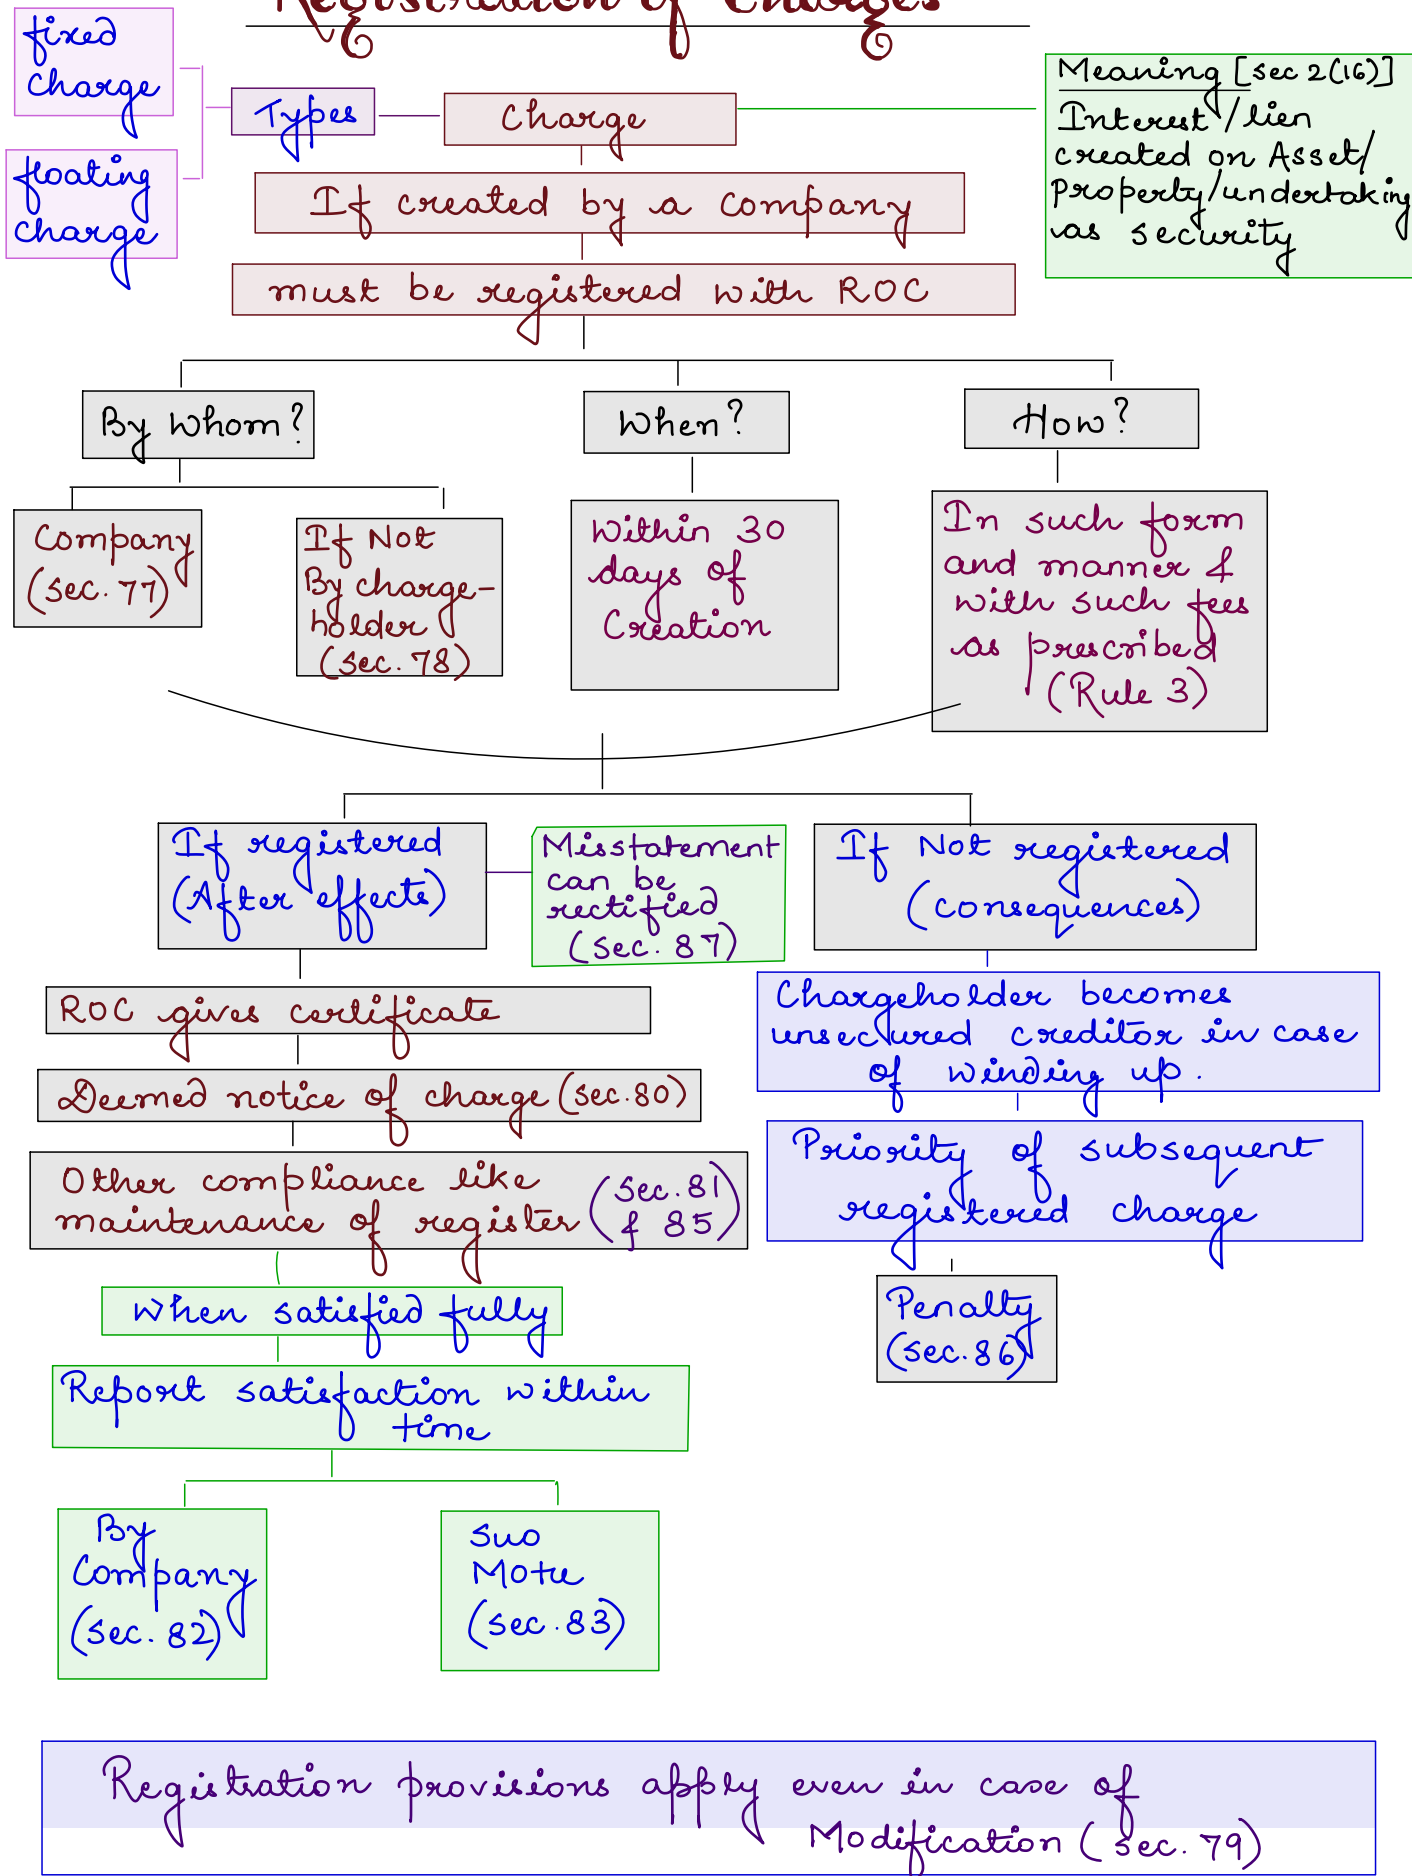 Registration of Charges
fixed
charge
floating
charge
Types
Charge
Meaning [sec 2(16)]
Interest/lien
created on Asset/
Property/undertaking
as security
If created by a company
must be registered with ROC
By whom?
When?
How?
Company
(sec. 77)
If Not
By charge-
holder
(sec. 78)
Within 30
days of
Creation
In such form
and manner &
with such fees
as prescribed
(Rule 3)
If registered
(After effects)
Misstatement
can be
rectified
(sec. 87)
If Not registered
(consequences)
ROC gives certificate
Deemed notice of charge (sec. 80)
Other compliance like
maintenance of register
(sec. 81
& 85)
When satisfied fully
Report satisfaction within
time
By
Company
(sec. 82)
Suo
Motu
(sec. 83)
Chargeholder becomes
unsecured creditor in case
of winding up.
Priority of subsequent
registered charge
Penalty
(sec. 86)
Registration provisions apply even in case of
Modification (sec. 79)